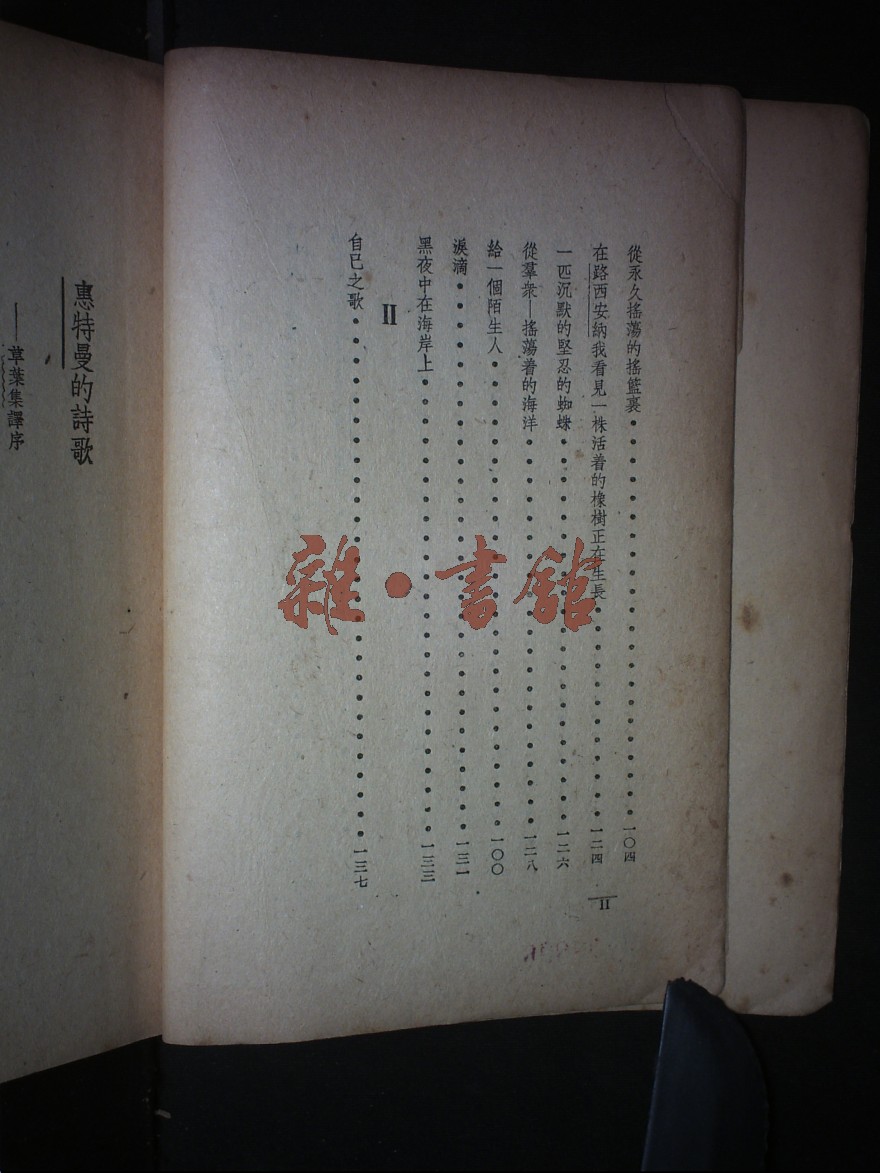 從永久搖蕩的搖籃裏・・・・・・・・・・・・・・・・・・・・一〇四
在路西安納我看見一株活着的橡樹正在生長・・・・・・・・・・一二四
一匹沉默的堅忍的蜘蛛・・・・・・・・・・・・・・・・・・・一二六
從羣衆—搖蕩着的海洋・・・・・・・・・・・・・・・・・・・一二八
給一個陌生人・・・・・・・・・・・・・・・・・・・・・・・一〇〇
淚滴・・・・・・・・・・・・・・・・・・・・・・・・・・・一三一
黑夜中在海岸上・・・・・・・・・・・・・・・・・・・・・・一三三
II
自已之歌・・・・・・・・・・・・・・・・・・・・・・・・・一三七
II
惠特曼的詩歌
——草葉集譯序
雜・書館